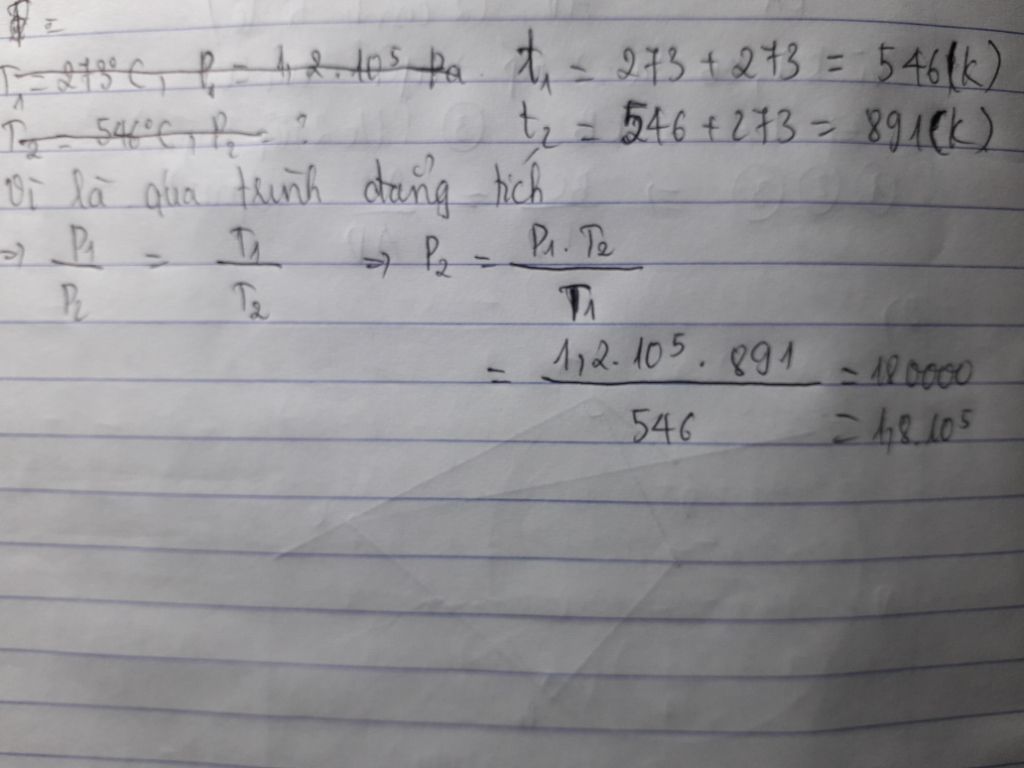 T₁ = 273°C, P₁ = 1,2.10⁵ Pa t₁ = 273 + 273 = 546(K)
T₂ = 546°C, P₂ = ? t₂ = 546 + 273 = 891(K)
Vì là quá trình đẳng tích
⇒ P₁/P₂ = T₁/T₂ ⇒ P₂ = P₁.T₂/T₁
= 1,2.10⁵.891/546 = 180000
= 1,8.10⁵